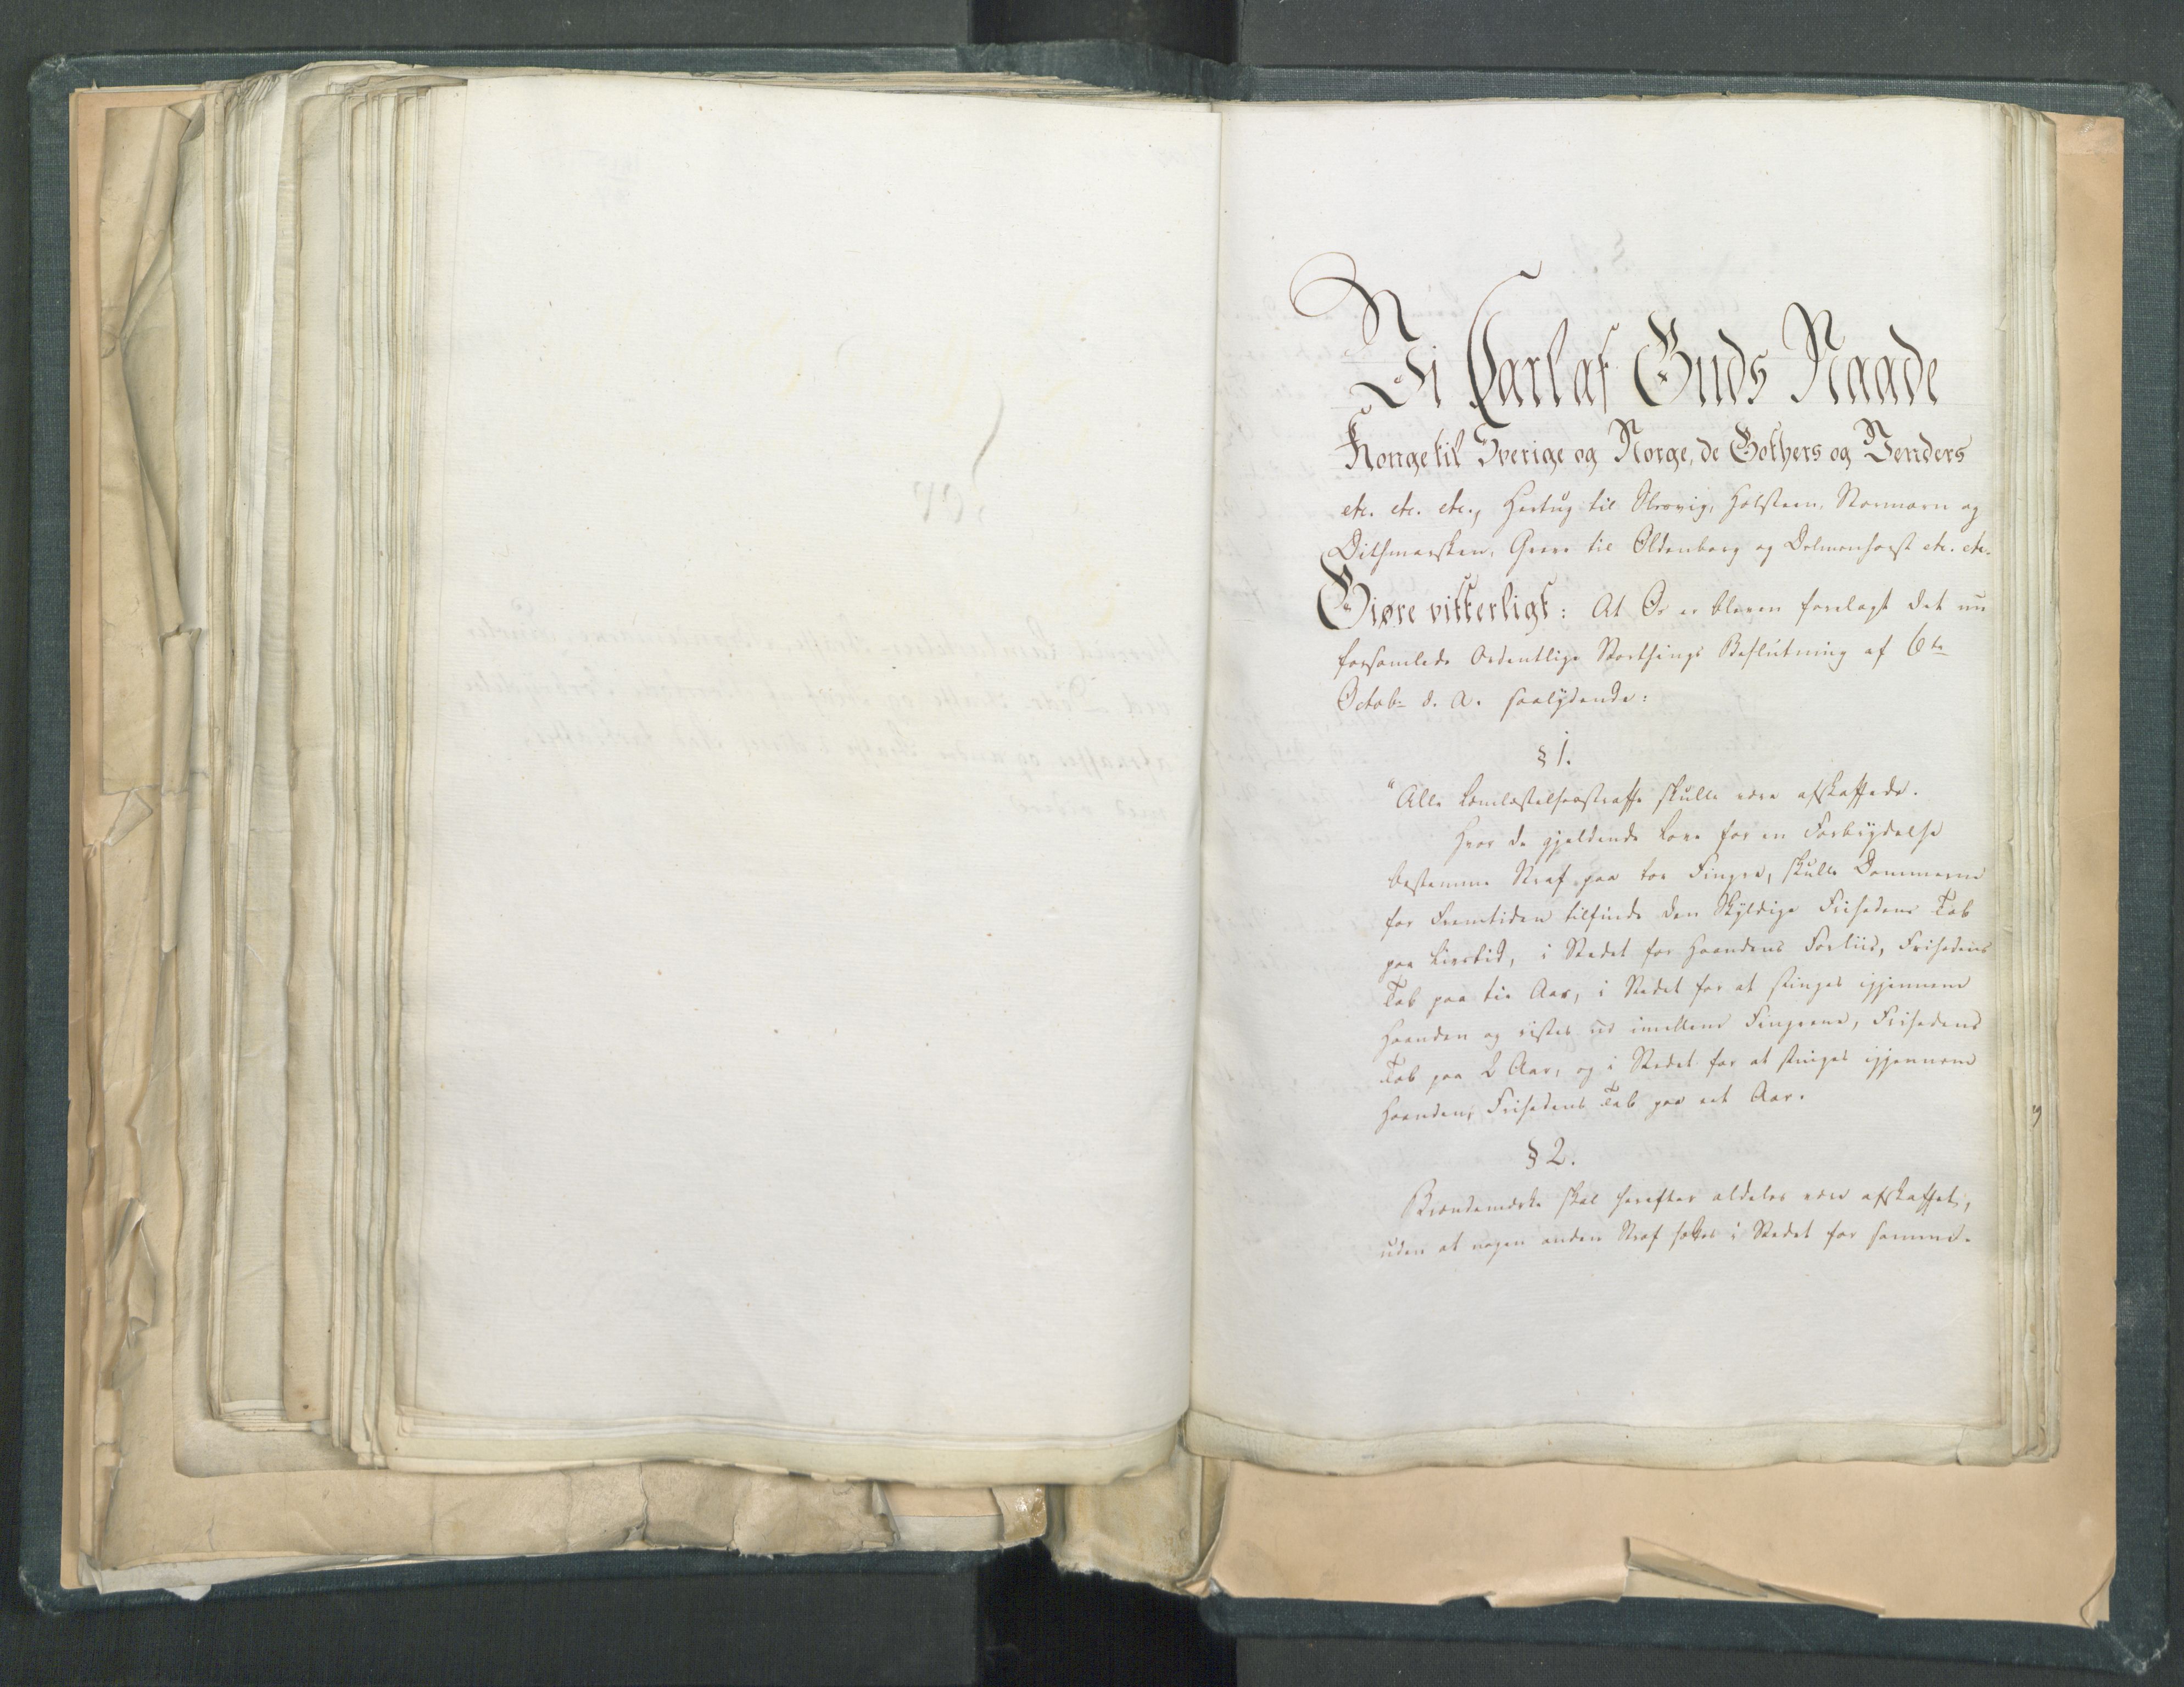 Vi Carl af Guds Naade
Konge til Sverige og Norge, de Gothers og Venders
etc. etc. etc., Hertug til Slesvig, Holsteen, Stormarn og
Dithmarsken, Greve til Oldenborg og Delmenhorst etc. etc.
Giøre vitterligt: At Os er bleven forelagt det nu
forsamlede Ordentlige Storthings Beslutning af 6te
Octobr d. A. saalydende:
§ 1.
"Alle Lemlæstelsesstraffe skulle være afskaffede.
Hvor de gjeldende Love for en Forbrydelse
bestemme Straf paa toe Fingre, skulle Dommerne
for Fremtiden tilfinde den Skyldige Frihedens Tab
paa Livstid, i Stedet for Haandens Forliis, Frihedens
Tab paa tie Aar, i Stedet for at stinges igjennem
Haanden og ristes ud imellem Fingrene, Frihedens
Tab paa 2 Aar, og i Stedet for at stinges igjennem
Haanden, Frihedens Tab paa eet Aar.
§ 2.
Brændemærke skal herefter aldeles være afskaffet,
uden at nogen anden Straf sættes i Stedet for samme.